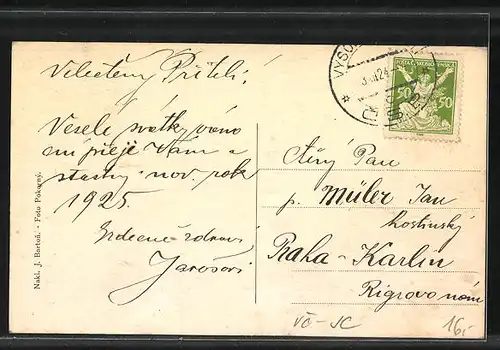 Velectěný Příteli!
Veselé svátky váno
ční přeje Vám a
šťastný nov. rok
1925.
Srdečně zdraví
Jarošovi
Nakl. J. Bartoň. - Foto Pokorný.
VYSO
24
POŠTA ČESKOSLOVENSKÁ
50 50
Ctěný Pan
p. Müler Jan
hostinský
Praha - Karlín
Rigrovo nám
VČ-JC
16,-